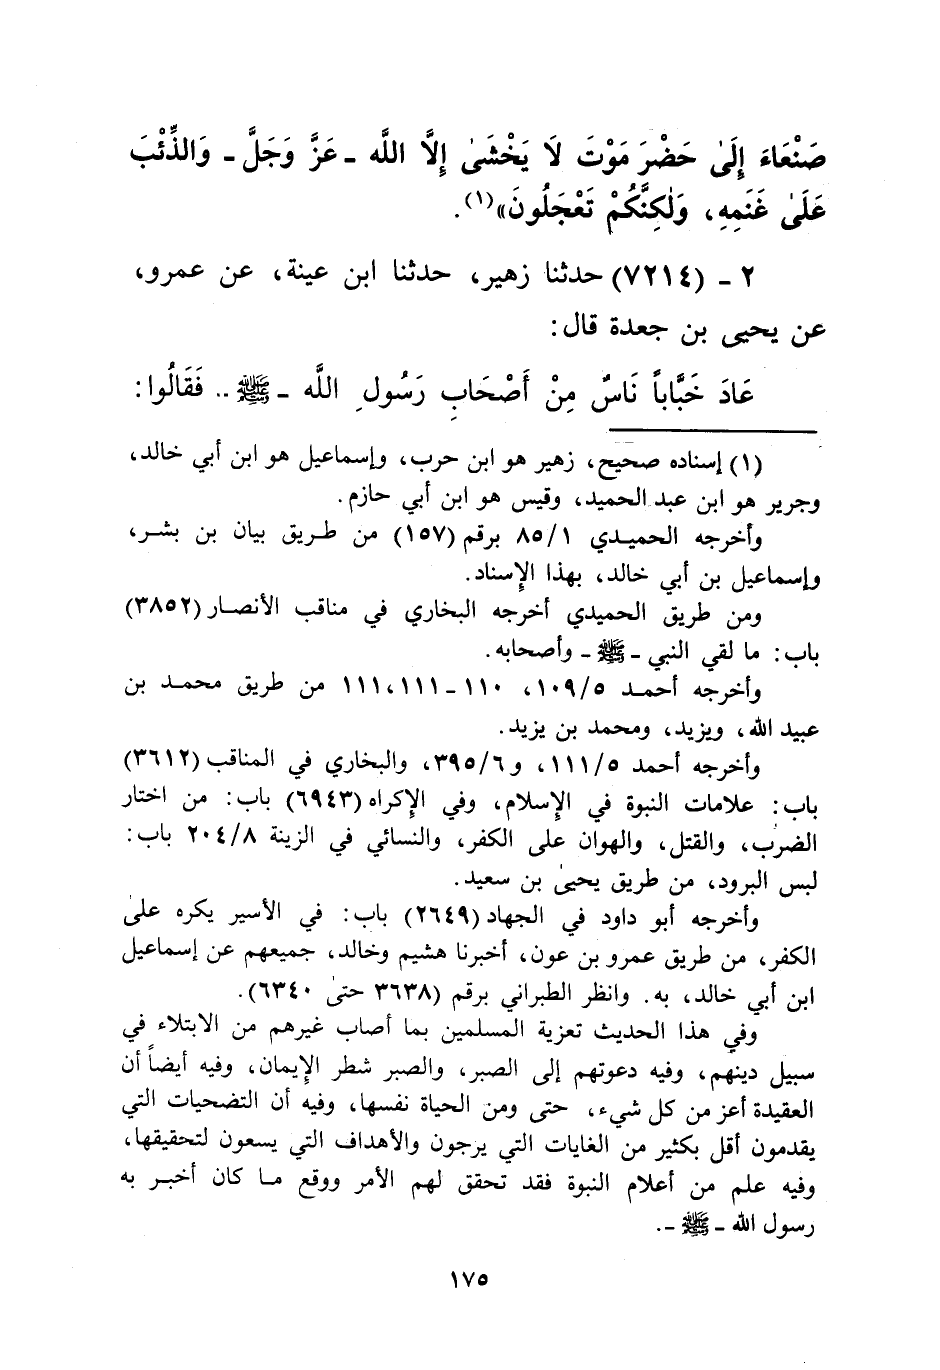 صَنْعَاءَ إِلَىٰ حَضْرَ مَوْتَ لَا يَخْشَىٰ إِلَّا اللَّه ـ عَزَّ وَجَلَّ ـ وَالذِّئْبَ
عَلَىٰ غَنَمِهِ، وَلٰكِنَّكُمْ تَعْجَلُونَ»(١).
٢ ـ (٧٢١٤) حدثنا زهير، حدثنا ابن عينة، عن عمرو،
عن يحيى بن جعدة قال:
عَادَ خَبَّاباً نَاسٌ مِنْ أَصْحَابِ رَسُولِ اللَّه ـ ﷺ .. فَقَالُوا:
(١) إسناده صحيح، زهير هو ابن حرب، وإسماعيل هو ابن أبي خالد،
وجرير هو ابن عبد الحميد، وقيس هو ابن أبي حازم.
وأخرجه الحميدي ٨٥/١ برقم (١٥٧) من طريق بيان بن بشر،
وإسماعيل بن أبي خالد، بهذا الإسناد.
ومن طريق الحميدي أخرجه البخاري في مناقب الأنصار (٣٨٥٢)
باب: ما لقي النبي ـ ﷺ ـ وأصحابه.
وأخرجه أحمد ١٠٩/٥، ١١٠ ـ ١١١،١١١ من طريق محمد بن
عبيد الله، ويزيد، ومحمد بن يزيد.
وأخرجه أحمد ١١١/٥، و٣٩٥/٦، والبخاري في المناقب (٣٦١٢)
باب: علامات النبوة في الإسلام، وفي الإكراه (٦٩٤٣) باب: من اختار
الضرب، والقتل، والهوان على الكفر، والنسائي في الزينة ٢٠٤/٨ باب:
لبس البرود، من طريق يحيىٰ بن سعيد.
وأخرجه أبو داود في الجهاد (٢٦٤٩) باب: في الأسير يكره علىٰ
الكفر، من طريق عمرو بن عون، أخبرنا هشيم وخالد، جميعهم عن إسماعيل
ابن أبي خالد، به. وانظر الطبراني برقم (٣٦٣٨ حتىٰ ٦٣٤٠).
وفي هذا الحديث تعزية المسلمين بما أصاب غيرهم من الابتلاء في
سبيل دينهم، وفيه دعوتهم إلى الصبر، والصبر شطر الإيمان، وفيه أيضاً أن
العقيدة أعز من كل شيء، حتى ومن الحياة نفسها، وفيه أن التضحيات التي
يقدمون أقل بكثير من الغايات التي يرجون والأهداف التي يسعون لتحقيقها،
وفيه علم من أعلام النبوة فقد تحقق لهم الأمر ووقع ما كان أخبر به
رسول الله ـ ﷺ ـ.
١٧٥